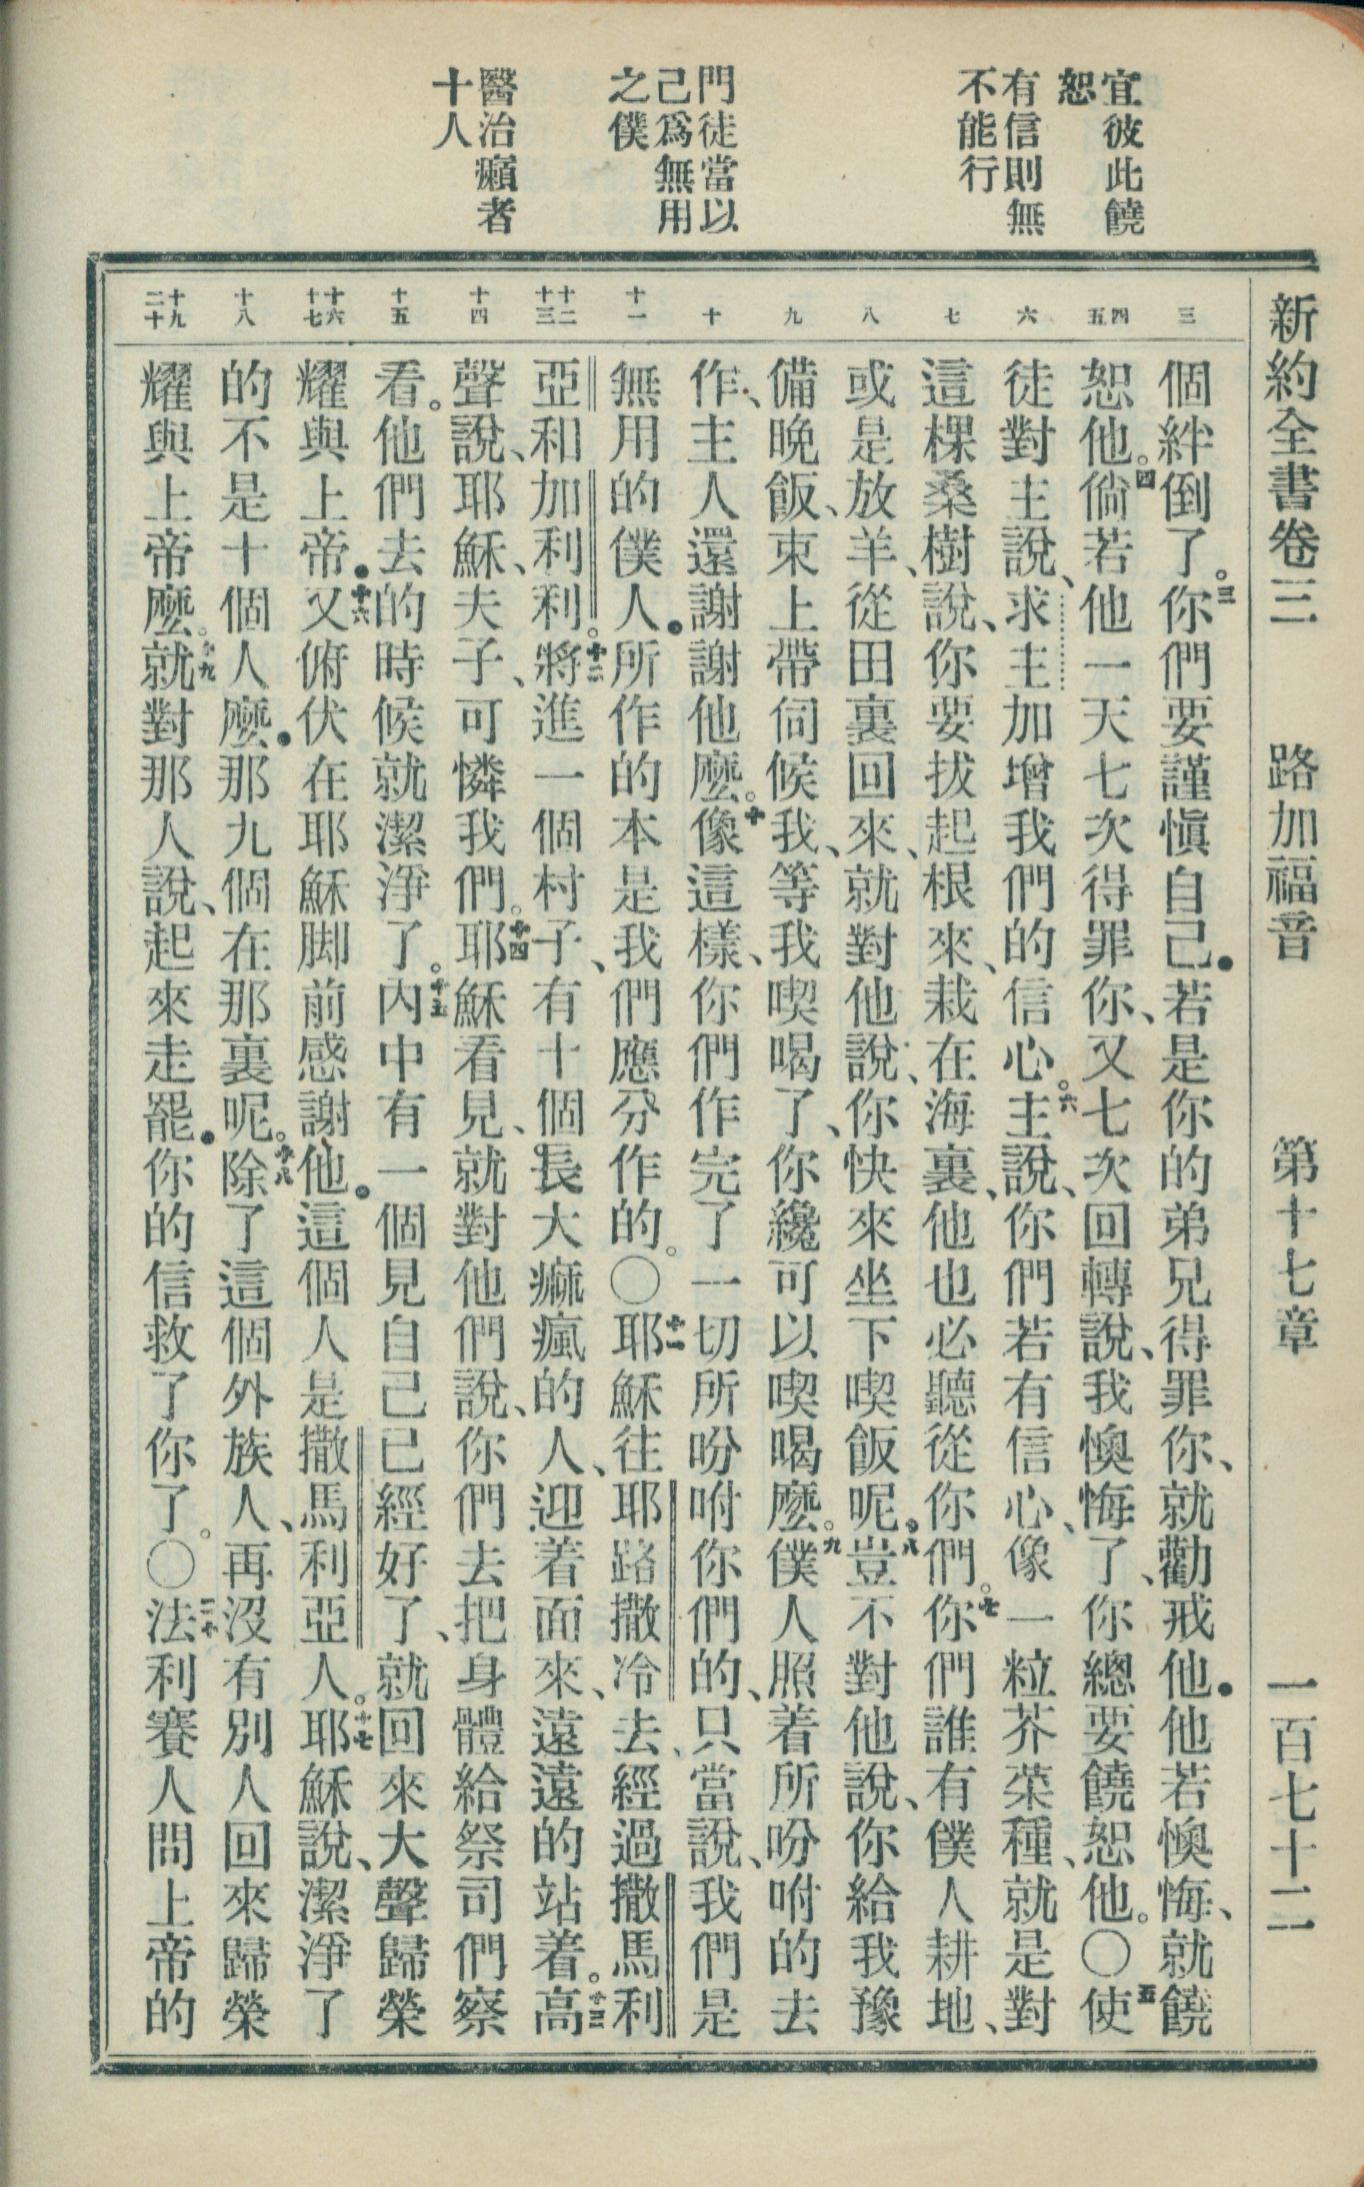 新約全書卷三　路加福音　第十七章　一百七十二
宜彼此饒
恕
有信則無
不能行
門徒當以
己爲無用
之僕
醫治癩者
十人
三
四
五
六
七
八
九
十
十一
十二
十三
十四
十五
十六
十七
十八
十九
二十
個絆倒了。三你們要謹愼自己．若是你的弟兄得罪你、就勸戒他．他若懊悔、就饒
恕他。四倘若他一天七次得罪你、又七次回轉說、我懊悔了、你總要饒恕他。〇五使
徒對主說、求主加增我們的信心。六主說、你們若有信心、像一粒芥菜種、就是對
這棵桑樹說、你要拔起根來、栽在海裏、他也必聽從你們。七你們誰有僕人耕地、
或是放羊、從田裏回來、就對他說、你快來坐下喫飯呢。八豈不對他說、你給我豫
備晚飯、束上帶伺候我、等我喫喝了、你纔可以喫喝麼。九僕人照着所吩咐的去
作、主人還謝謝他麼。十像這樣、你們作完了一切所吩咐你們的、只當說、我們是
無用的僕人．所作的本是我們應分作的。〇十一耶穌往耶路撒冷去、經過撒馬利
亞和加利利。十二將進一個村子、有十個長大痲瘋的人、迎着面來、遠遠的站着。十三高
聲說、耶穌、夫子、可憐我們。十四耶穌看見、就對他們說、你們去把身體給祭司們察
看。他們去的時候就潔淨了。十五內中有一個見自己已經好了、就回來大聲歸榮
耀與上帝．十六又俯伏在耶穌脚前感謝他．這個人是撒馬利亞人。十七耶穌說、潔淨了
的不是十個人麼．那九個在那裏呢。十八除了這個外族人、再沒有別人回來歸榮
耀與上帝麼。十九就對那人說、起來走罷．你的信救了你了。〇二十法利賽人問上帝的